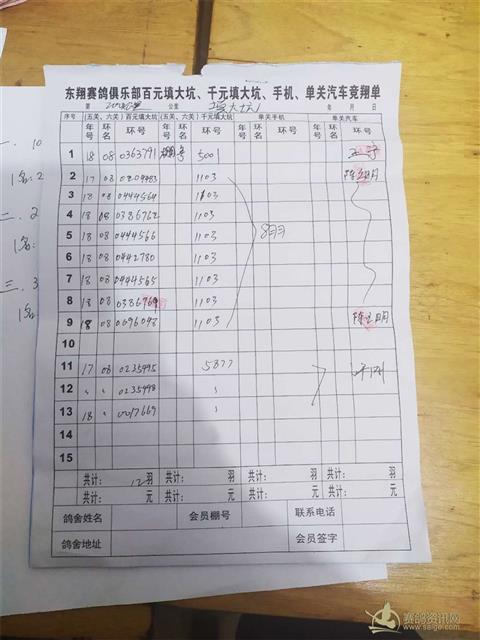 东翔赛鸽俱乐部百元填大坑、千元填大坑、手机、单关汽车竞翔单
第 公里 公棠 填大坑 年 月 日
序号 (五关、六关)百元填大坑 (五关、六关)千元填大坑 单关手机 单关汽车
年号 环名 环号 年号 环名 环号 年号 环名 环号 年号 环名 环号
1 18 08 0363791 棚号 5001
2 17 08 1103
3 18 08 0444564 1103
4 18 08 0386762 1103
5 18 08 0444566 1103 8羽
6 18 08 0442780 1103
7 18 08 0444565 1103
8 18 08 1103
9 18 08 0696048 1103
10
11 17 08 0235995 5877
12 〃 〃 0235998 〃
13 18 〃 0017669 〃
14
15
共计: 12 羽 共计: 羽 共计: 羽 共计: 羽
共计: 元 共计: 元 共计: 元 共计: 元
鸽舍姓名 会员棚号 联系电话
鸽舍地址 会员签字
一. 10
1名:2
二. 2
1名:
三. 3
1名:
赛鸽资讯网
www.saige.com